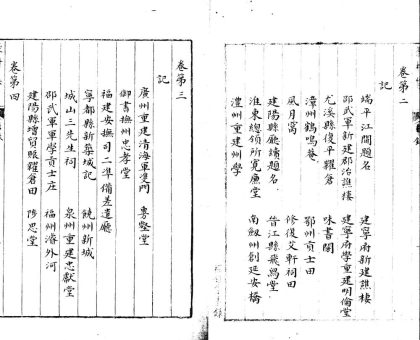 卷第二
記
端平江閫題名　建寧府新建譙樓
邵武軍新建郡治譙樓　建寧府學重建明倫堂
尤溪縣復平糴倉　味書閣
漳州鶴鳴菴　鄂州貢士田
風月窩　修復艾軒祠田
建陽縣廳續題名　晉江縣飛鳬堂
淮東總領所寬廉堂　南劔州創延安橋
澧州重建州學
卷第三
記
廣州重建清海軍雙門　專壑堂
御書撫州忠孝堂
福建安撫司二準備差遣廳
寧都縣新築城記　饒州新城
城山三先生祠　泉州重建忠獻堂
邵武軍軍學貢士庄　福州濬外河
建陽縣增買賑糶倉田　陟思堂
卷第四